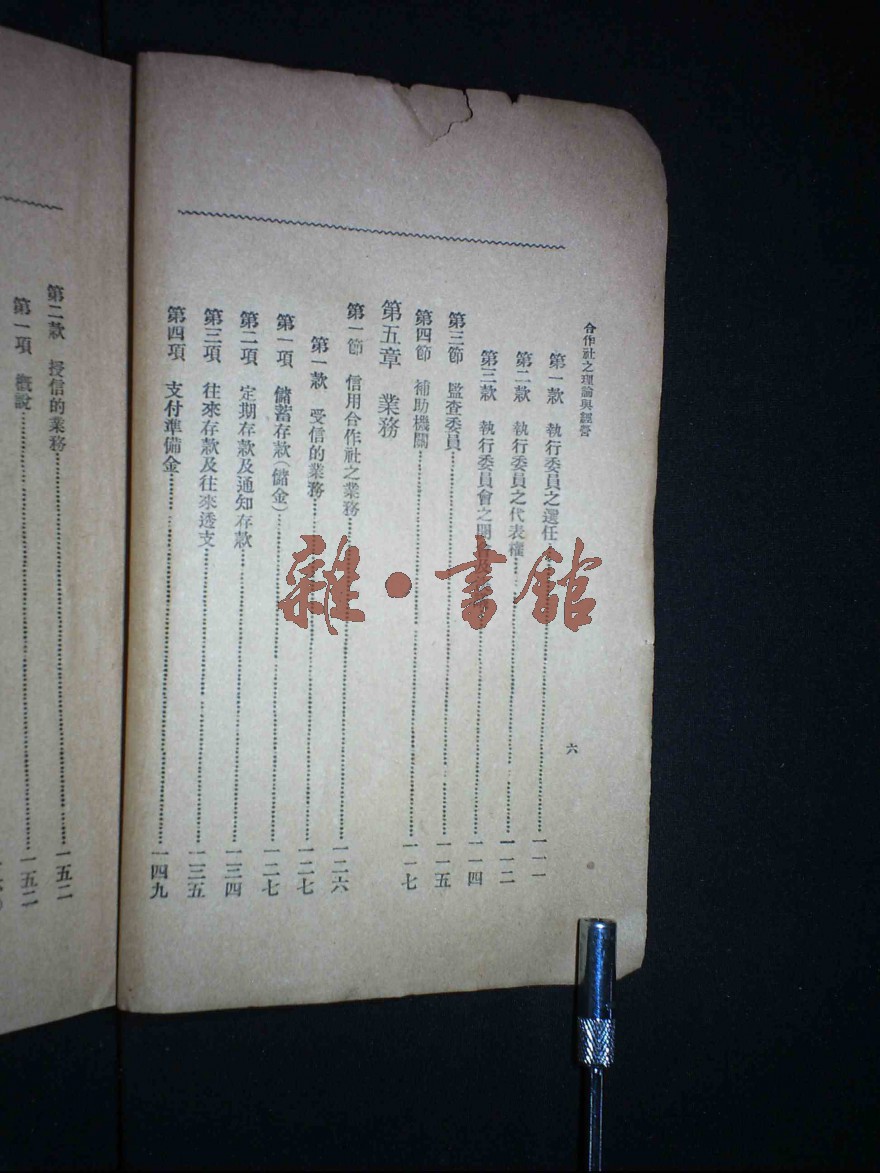 合作社之理論與經營
六
第一款 執行委員之選任……一一一
第二款 執行委員之代表權……一一二
第三款 執行委員會之開……一一四
第三節 監查委員……一一五
第四節 補助機關……一一七
第五章 業務
第一節 信用合作社之業務……一二六
第一款 受信的業務……一二七
第一項 儲蓄存款(儲金)……一二七
第二項 定期存款及通知存款……一三四
第三項 往來存款及往來透支……一三五
第四項 支付準備金……一四九
第二款 授信的業務……一五二
第一項 概說……一五二
雜·書館